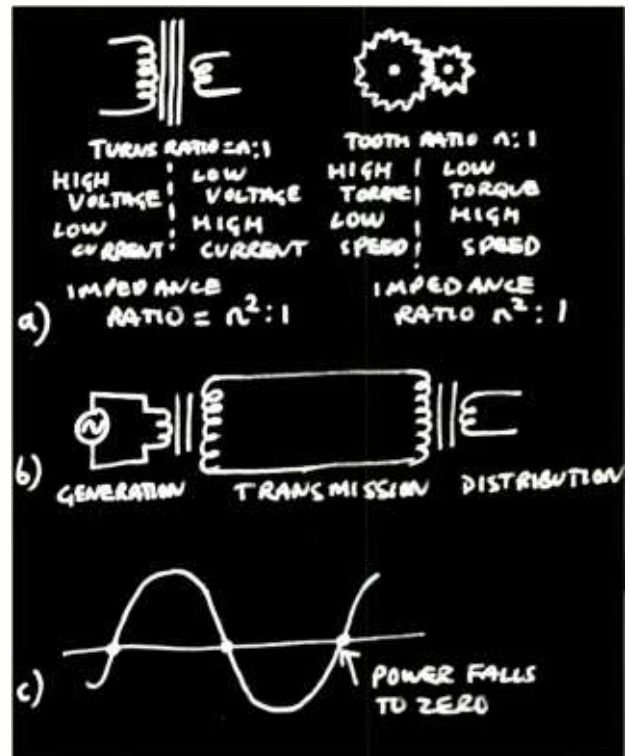 TURNS RATIO = n:1
HIGH VOLTAGE
LOW VOLTAGE
LOW CURRENT
HIGH CURRENT
IMPEDANCE
RATIO = n²:1
TOOTH RATIO n:1
HIGH TORQUE
LOW TORQUE
LOW SPEED
HIGH SPEED
IMPEDANCE
RATIO n²:1
a)
b)
GENERATION TRANSMISSION DISTRIBUTION
c)
POWER FALLS
TO ZERO